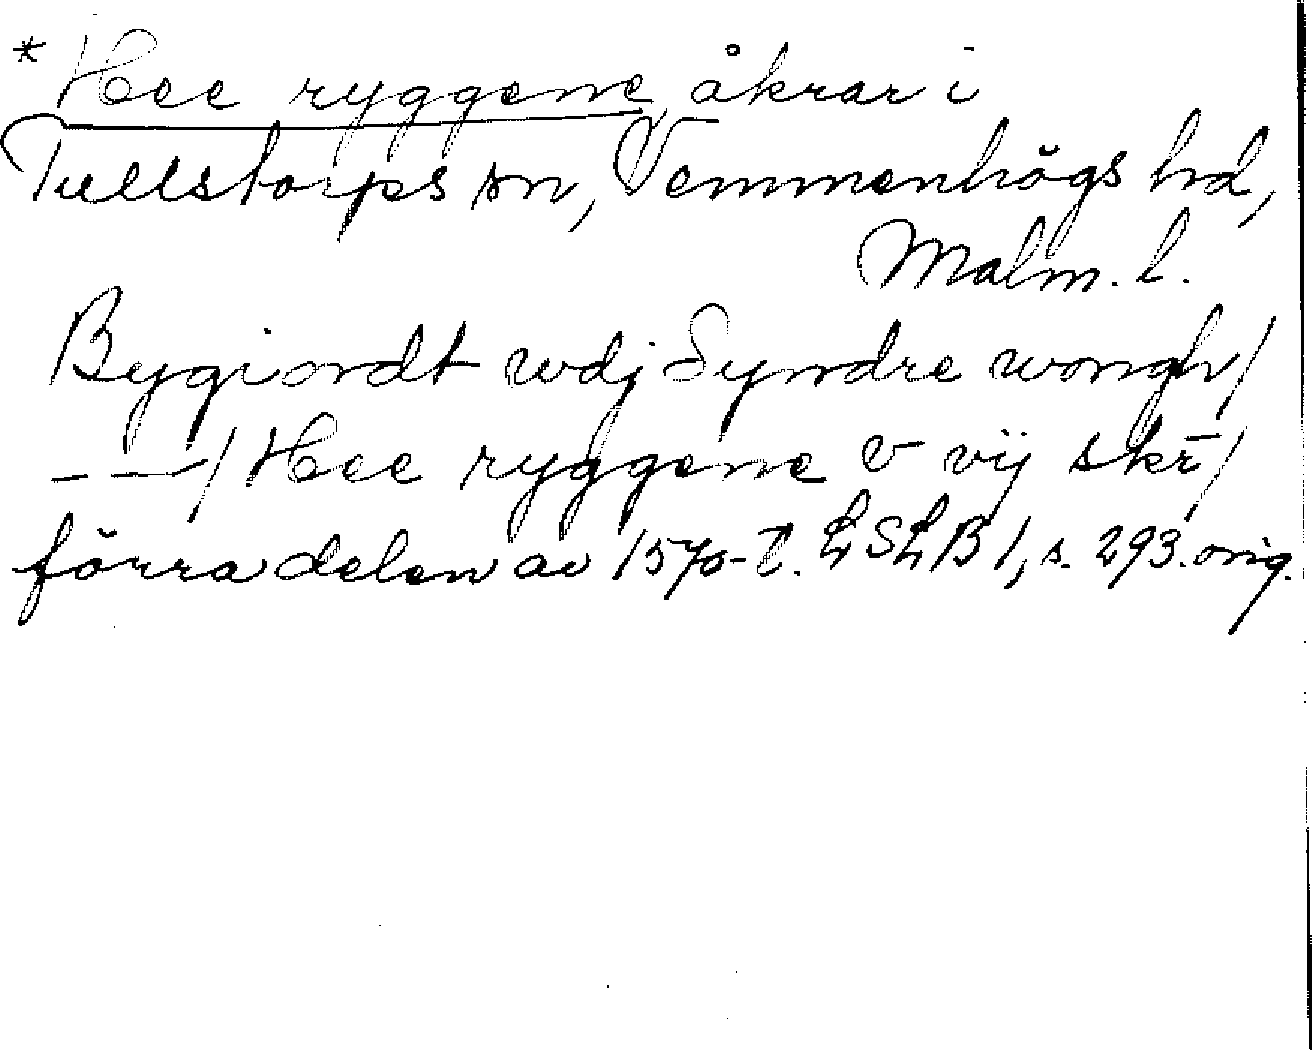 * Hee ryggene, åkrar i
Tullstorps sn, Vemmenhögs hd,
Malm. l.
Bygiordt wdj Syndre wongh/
– – –/ Hee ryggene v vij skr̄/
förra delen av 1570-t. LSLB 1, s. 293. orig.